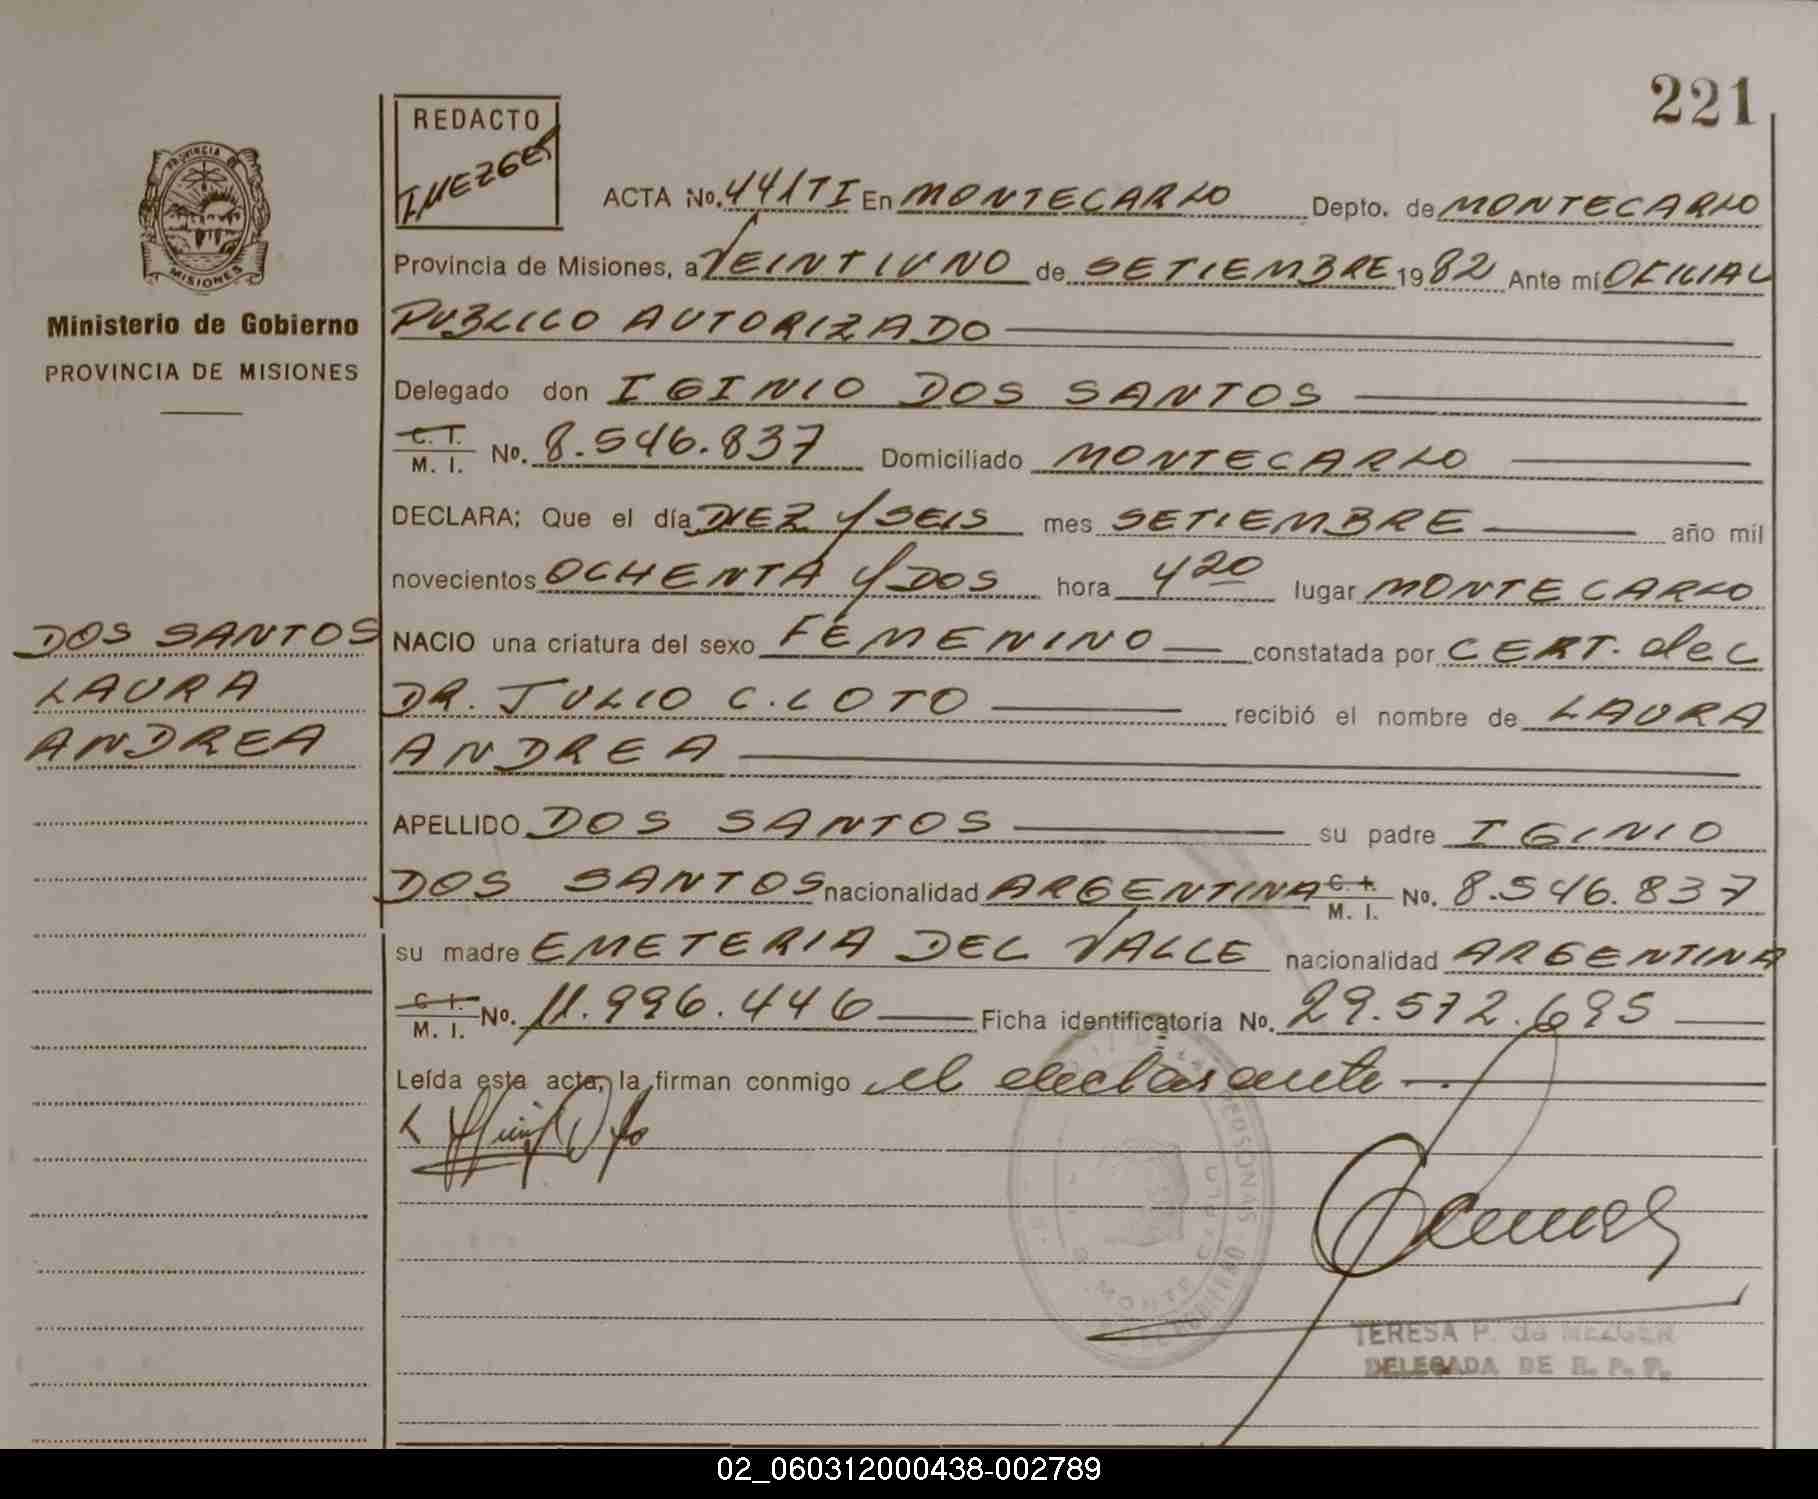 221
REDACTO
T.MEZGER
ACTA No. 441TI En MONTECARLO Depto. de MONTECARLO
Provincia de Misiones, a VEINTIUNO de SETIEMBRE 1982 Ante mí OFICIAL
PUBLICO AUTORIZADO
Delegado don IGINIO DOS SANTOS
C. I. M. I. No. 8.546.837 Domiciliado MONTECARLO
DECLARA; Que el día DIEZ Y SEIS mes SETIEMBRE año mil
novecientos OCHENTA Y DOS hora 4 20 lugar MONTECARLO
NACIO una criatura del sexo FEMENINO constatada por CERT. del
DR. JULIO C. LOTO recibió el nombre de LAURA
ANDREA
APELLIDO DOS SANTOS su padre IGINIO
DOS SANTOS nacionalidad ARGENTINA C. I. M. I. No. 8.546.837
su madre EMETERIA DEL VALLE nacionalidad ARGENTINA
C. I. M. I. No. 11.996.446 Ficha identificatoria No. 29.572.695
Leída esta acta, la firman conmigo el declarante
TERESA P. de MEZGER
DELEGADA DE R. P. P.
PROVINCIA DE
MISIONES
Ministerio de Gobierno
PROVINCIA DE MISIONES
DOS SANTOS
LAURA
ANDREA
02_060312000438-002789